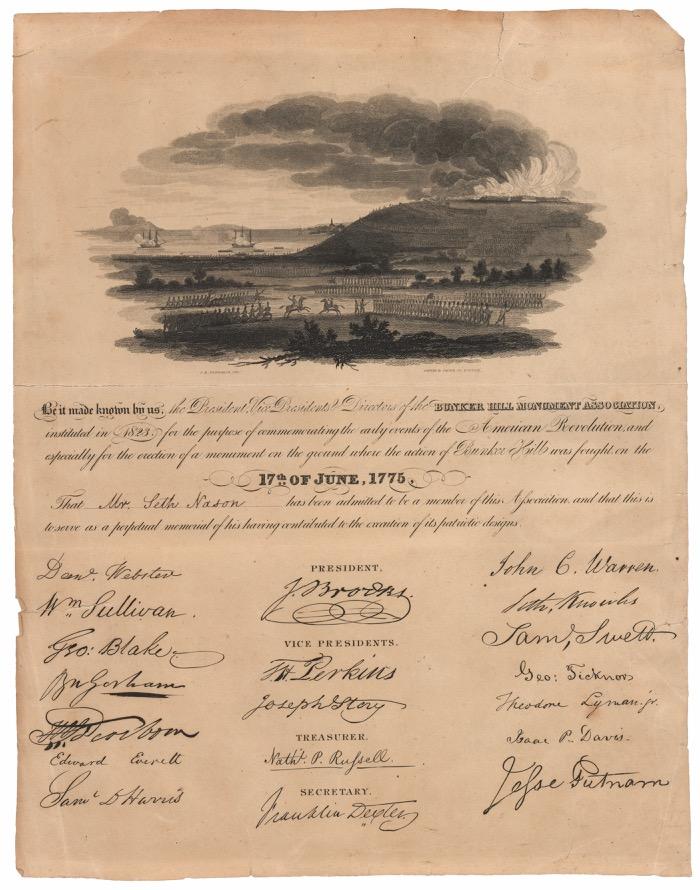 Be it made known by us, the President, Vice Presidents & Directors of the BUNKER HILL MONUMENT ASSOCIATION,
instituted in 1823, for the purpose of commemorating the early events of the American Revolution, and
especially for the erection of a monument on the ground where the action of Bunker Hill was fought, on the
17th OF JUNE, 1775.
That Mr. Seth Nason has been admitted to be a member of this Association, and that this is
to serve as a perpetual memorial of his having contributed to the execution of its patriotic designs.
Danl. Webster
Wm Sullivan.
Geo: Blake
Bn Gorham
Edward Everett
Saml D Harris
PRESIDENT.
J. Brooks.
VICE PRESIDENTS.
TH Perkins
Joseph Story
TREASURER.
Nathl. P. Russell.
SECRETARY.
Franklin Dexter
John C. Warren.
Seth, Knowles
Saml, Swett.
Geo: Ticknor
Theodore Lyman. jr.
Isaac P. Davis.
Jesse Putnam